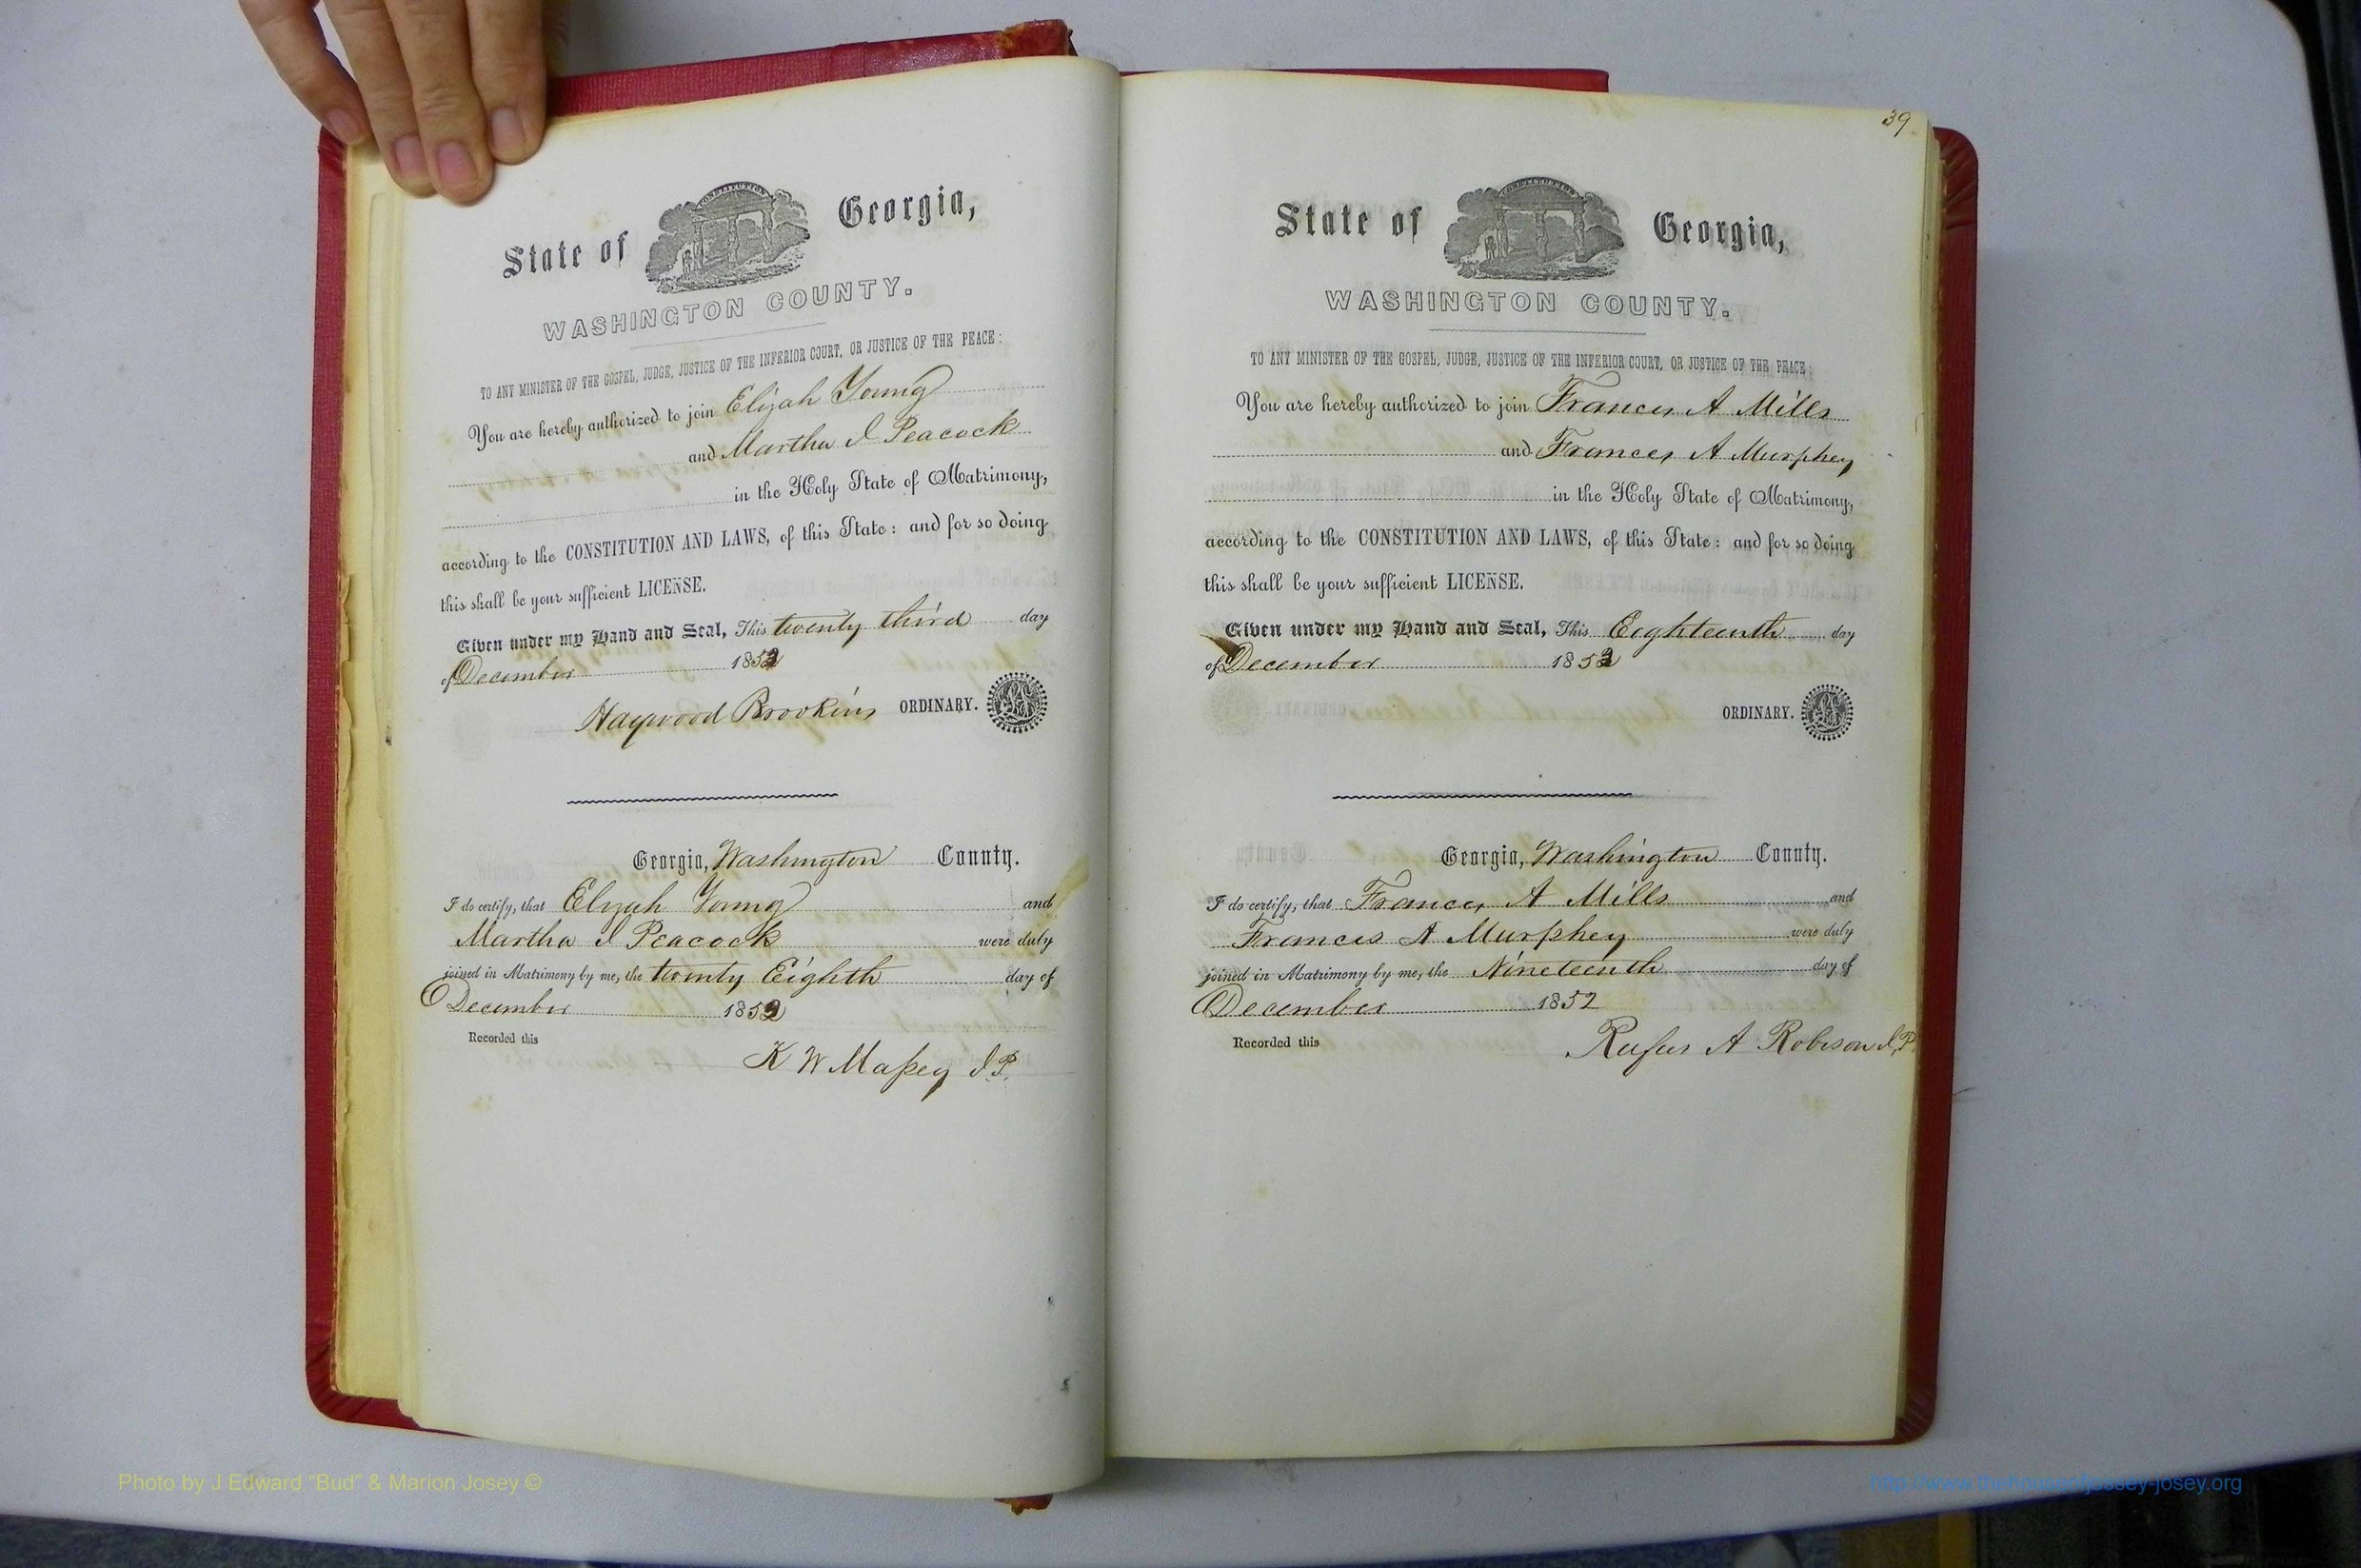 State of Georgia,
CONSTITUTION
WASHINGTON COUNTY.
TO ANY MINISTER OF THE GOSPEL, JUDGE, JUSTICE OF THE INFERIOR COURT, OR JUSTICE OF THE PEACE:
You are hereby authorized to join Elizah Young
and Martha I Peacock
in the Holy State of Matrimony,
according to the CONSTITUTION AND LAWS, of this State: and for so doing
this shall be your sufficient LICENSE.
Given under my Hand and Seal, This twenty third day
of December 1852
Haywood Brookins ORDINARY.
Georgia, Washington County.
I do certify, that Elizah Young and
Martha I Peacock were duly
joined in Matrimony by me, the twenty Eighth day of
December 1852
Recorded this
K W Massey J.P.
39
State of Georgia,
CONSTITUTION
WASHINGTON COUNTY.
TO ANY MINISTER OF THE GOSPEL, JUDGE, JUSTICE OF THE INFERIOR COURT, OR JUSTICE OF THE PEACE:
You are hereby authorized to join Frances A Mills
and Frances A Murphey
in the Holy State of Matrimony,
according to the CONSTITUTION AND LAWS, of this State: and for so doing
this shall be your sufficient LICENSE.
Given under my Hand and Seal, This Eighteenth day
of December 1852
ORDINARY.
Georgia, Washington County.
I do certify, that Frances A Mills and
Frances A Murphey were duly
joined in Matrimony by me, the Nineteenth day of
December 1852
Recorded this
Rufus A Robison J,P.
Photo by J Edward "Bud" & Marion Josey ©
http://www.thehouseofjossey-josey.org